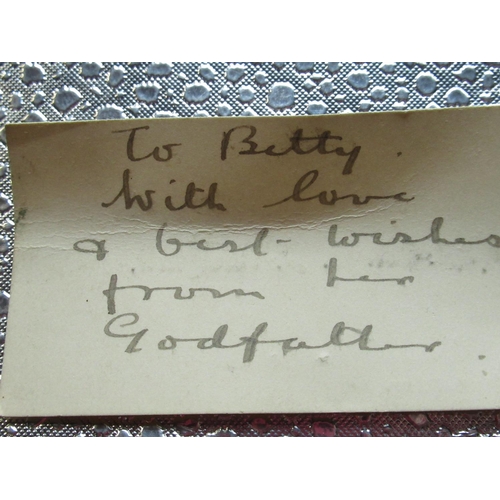 To Betty.
With love
& best wishes
from her
Godfather.